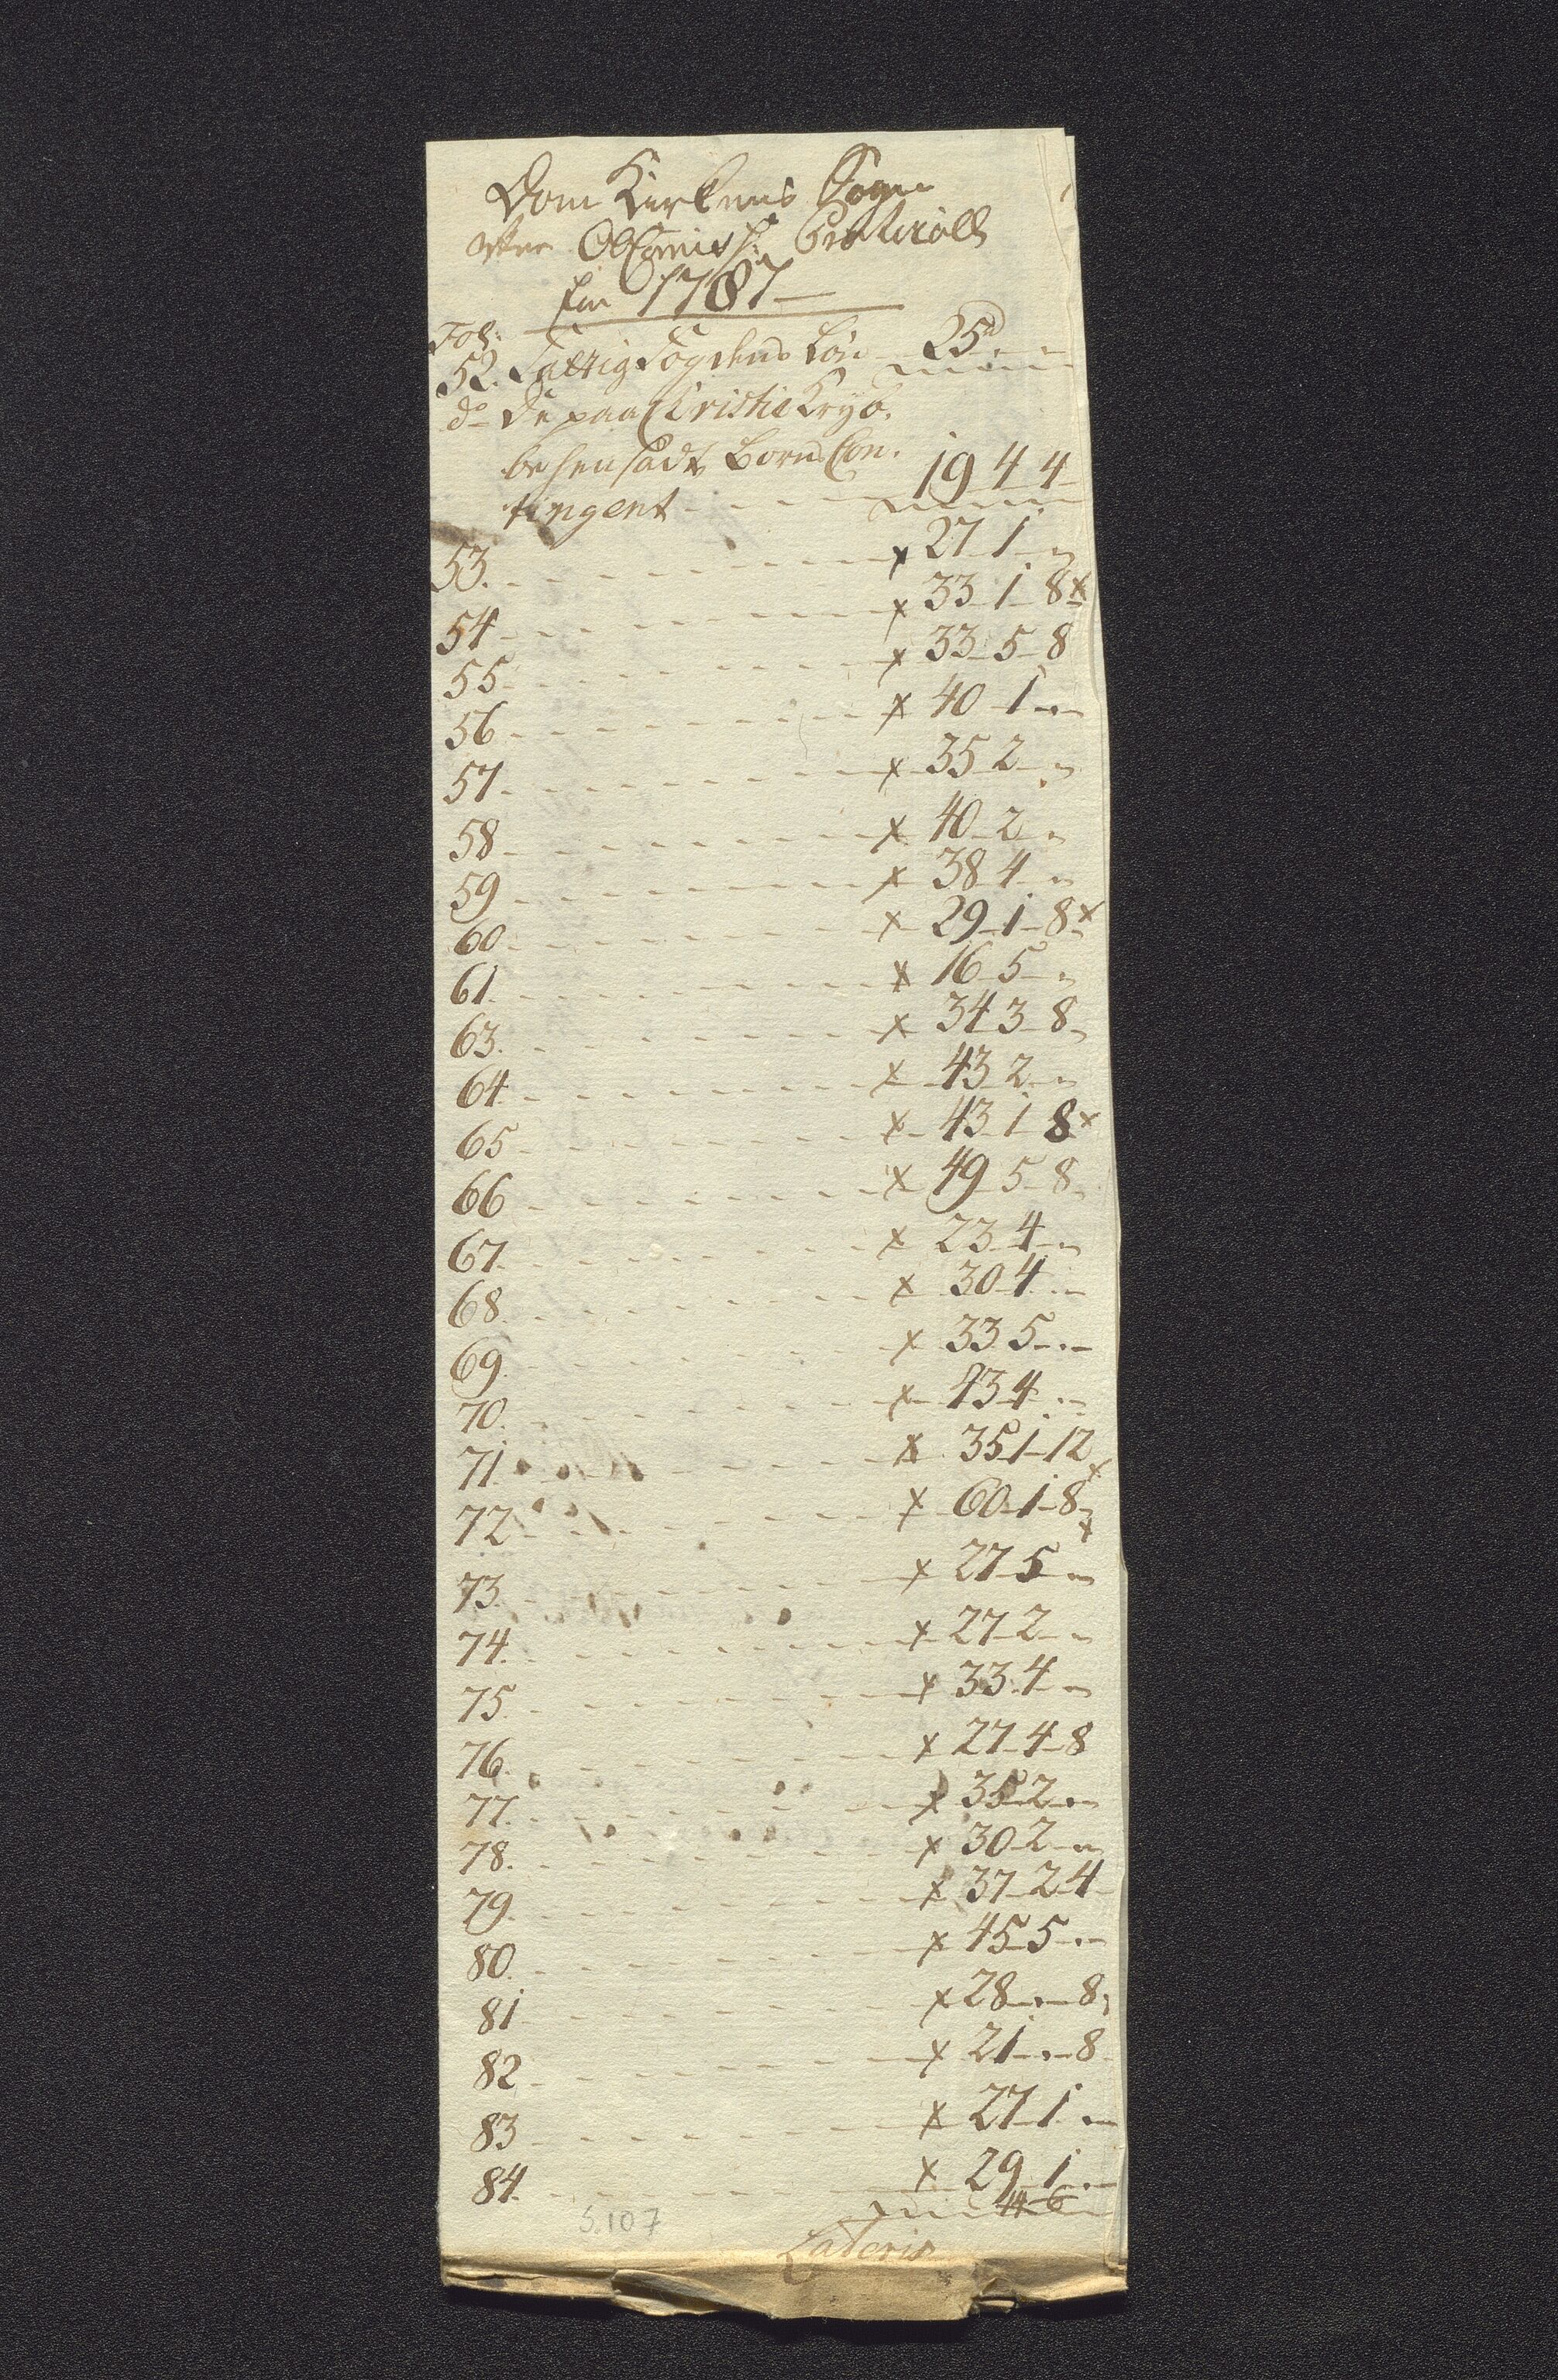 Dom Kirkens Sogn
efter Protocoll
for 1787
Fol:
52. Fattig Fogdens Løn 25
do De paa Christie Krybbe
hensadte Børns Con-
tingent 19 4 4
53. x 27 1 "
54 x 33 1 8 x
55 x 33 5 8
56 x 40 1 "
57 x 35 2 "
58 x 40 2 "
59 x 38 4 "
60 x 29 1 8 x
61 x 16 5 "
63. x 34 3 8
64 x 43 2 "
65 x 43 1 8 x
66 x 49 5 8
67 x 23 4 "
68 x 30 4 "
69. x 33 5 "
70. x 43 4 "
71. x 35 1 12 x
72 x 60 1 8 x
73. x 27 5 "
74. x 27 2 "
75. x 33 4 "
76. x 27 4 8
77. x 35 2 "
78. x 30 2 "
79. x 37 2 4
80. x 45 5 "
81 x 28 " 8
82 x 21 " 8
83 x 27 1 "
84. x 29 1 "
S. 107
Lateris